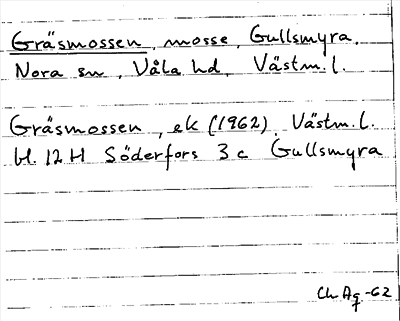 Gräsmossen, mosse, Gullsmyra,
Nora sn, Våla hd, Västm. l.
Gräsmossen, ek (1962), Västm. l.
bl. 12 H Söderfors 3 c Gullsmyra
Ch Ag -62